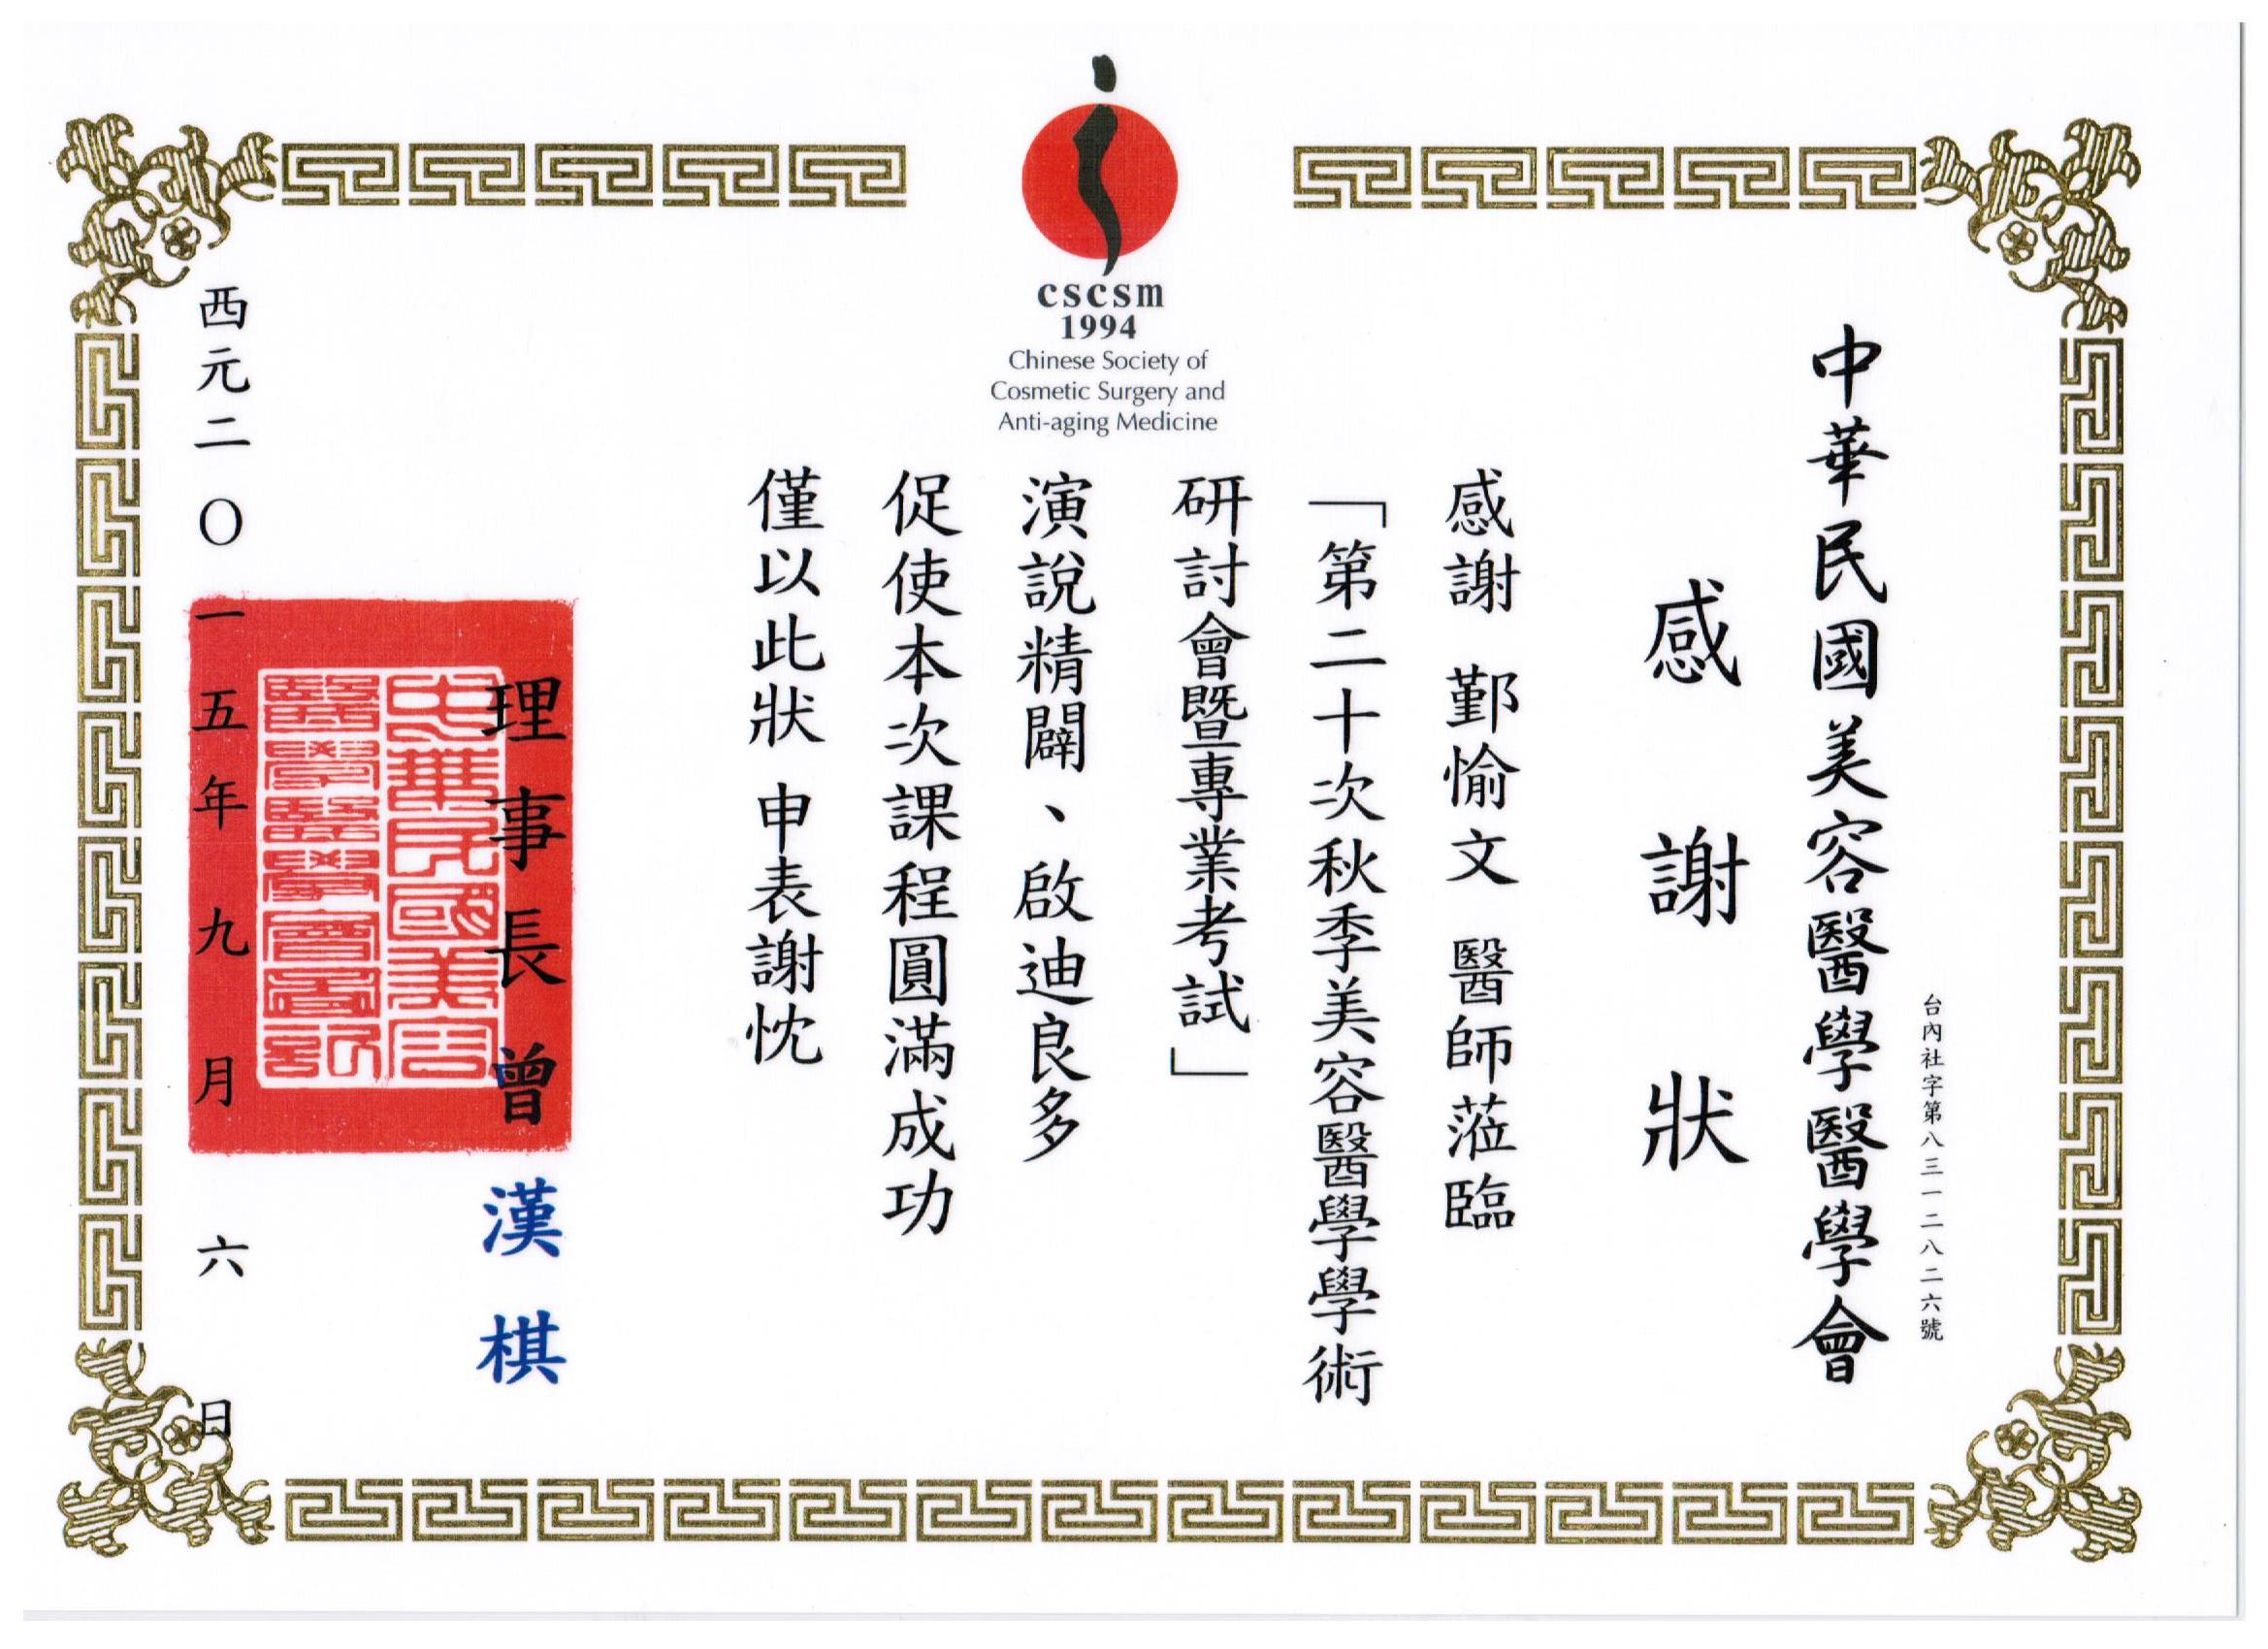 cscsm
1994
Chinese Society of
Cosmetic Surgery and
Anti-aging Medicine
台內社字第八三一二八二六號
中華民國美容醫學醫學會
感謝狀
感謝 鄞愉文 醫師蒞臨
「第二十次秋季美容醫學學術
研討會暨專業考試」
演說精闢、啟迪良多
促使本次課程圓滿成功
僅以此狀 申表謝忱
理事長 曾漢棋
中華民國美容
醫學醫學會圖記
西元二〇一五年九月六日